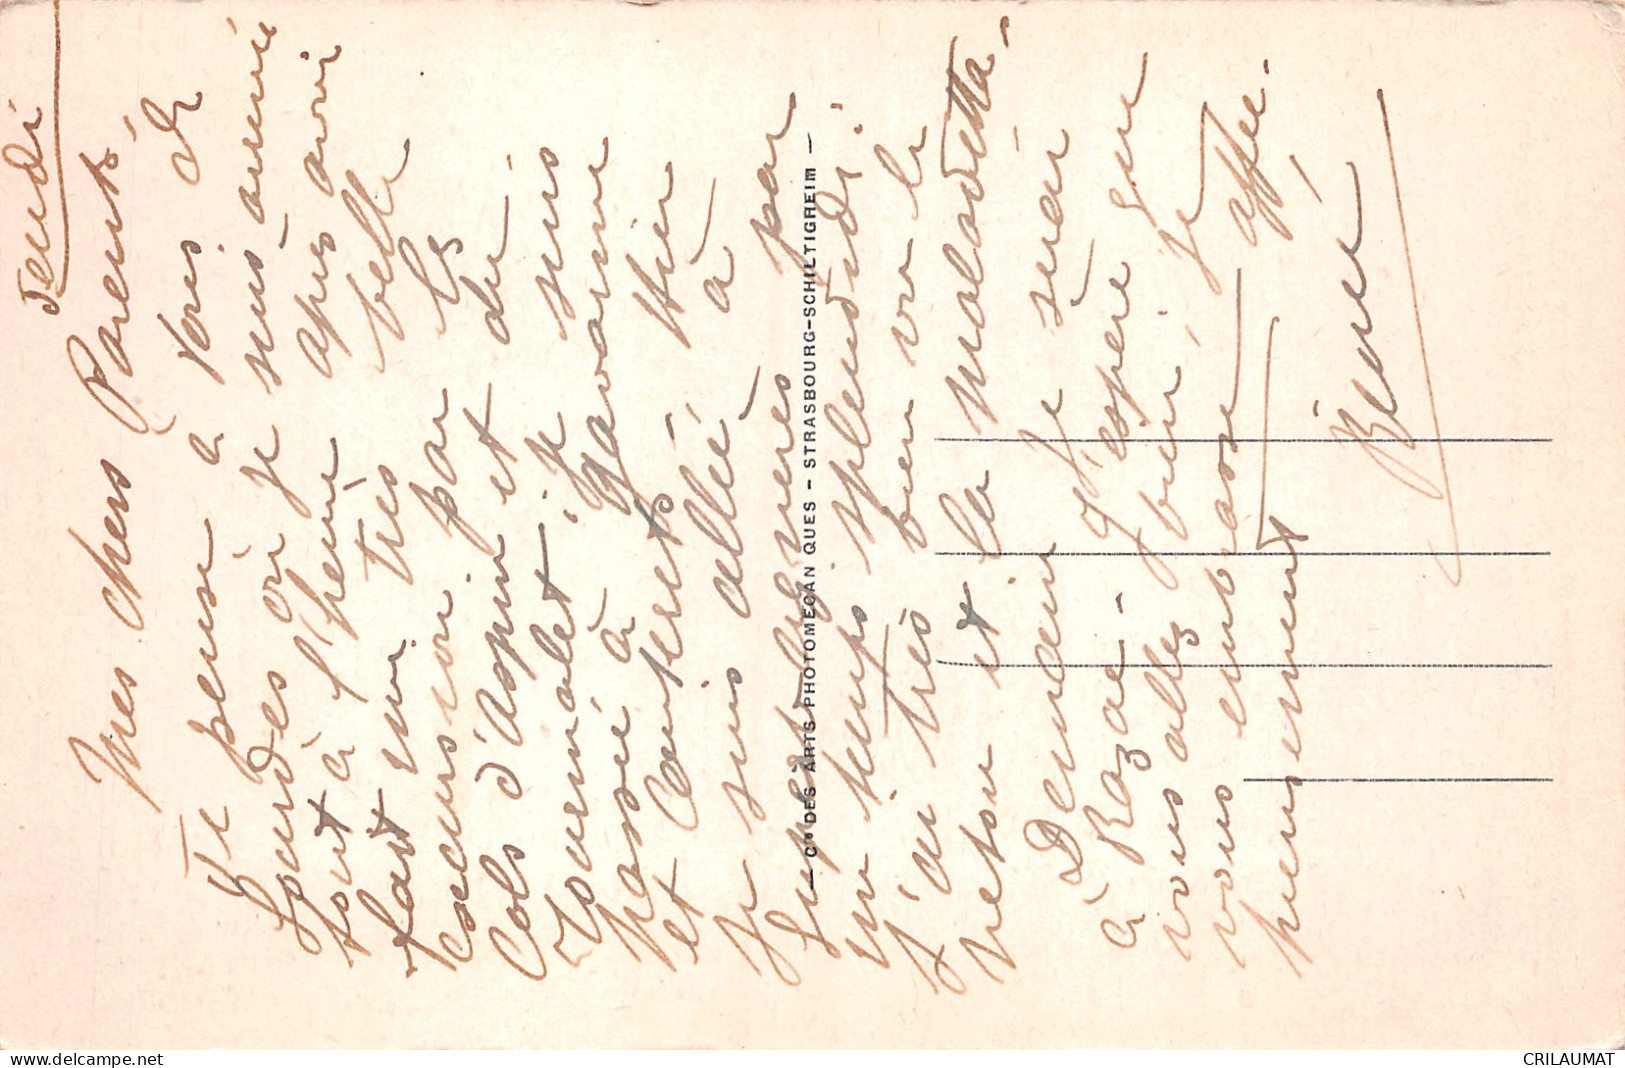 Jeudi
Mes chers Parents,
Je pense à vous de
Lourdes où je suis arrivée
tout à l'heure après avoir
fait une très belle
excursion par les
Cols d'Aspin et du
Tourmalet. Je suis
passée à Gavarnie
et Cauterets - Hier
je suis allée à
Superbagnères par
un temps splendide;
j'ai très bien vu le
Nethou et la Maladetta -
Demain je serai
à Bazac - J'espère que
vous allez bien, je
vous embrasse affec-
tueusement
Renée
— Cie DES ARTS PHOTOMECAN QUES - STRASBOURG-SCHILTIGREIM —
delcampe.net
CRILAUMAT